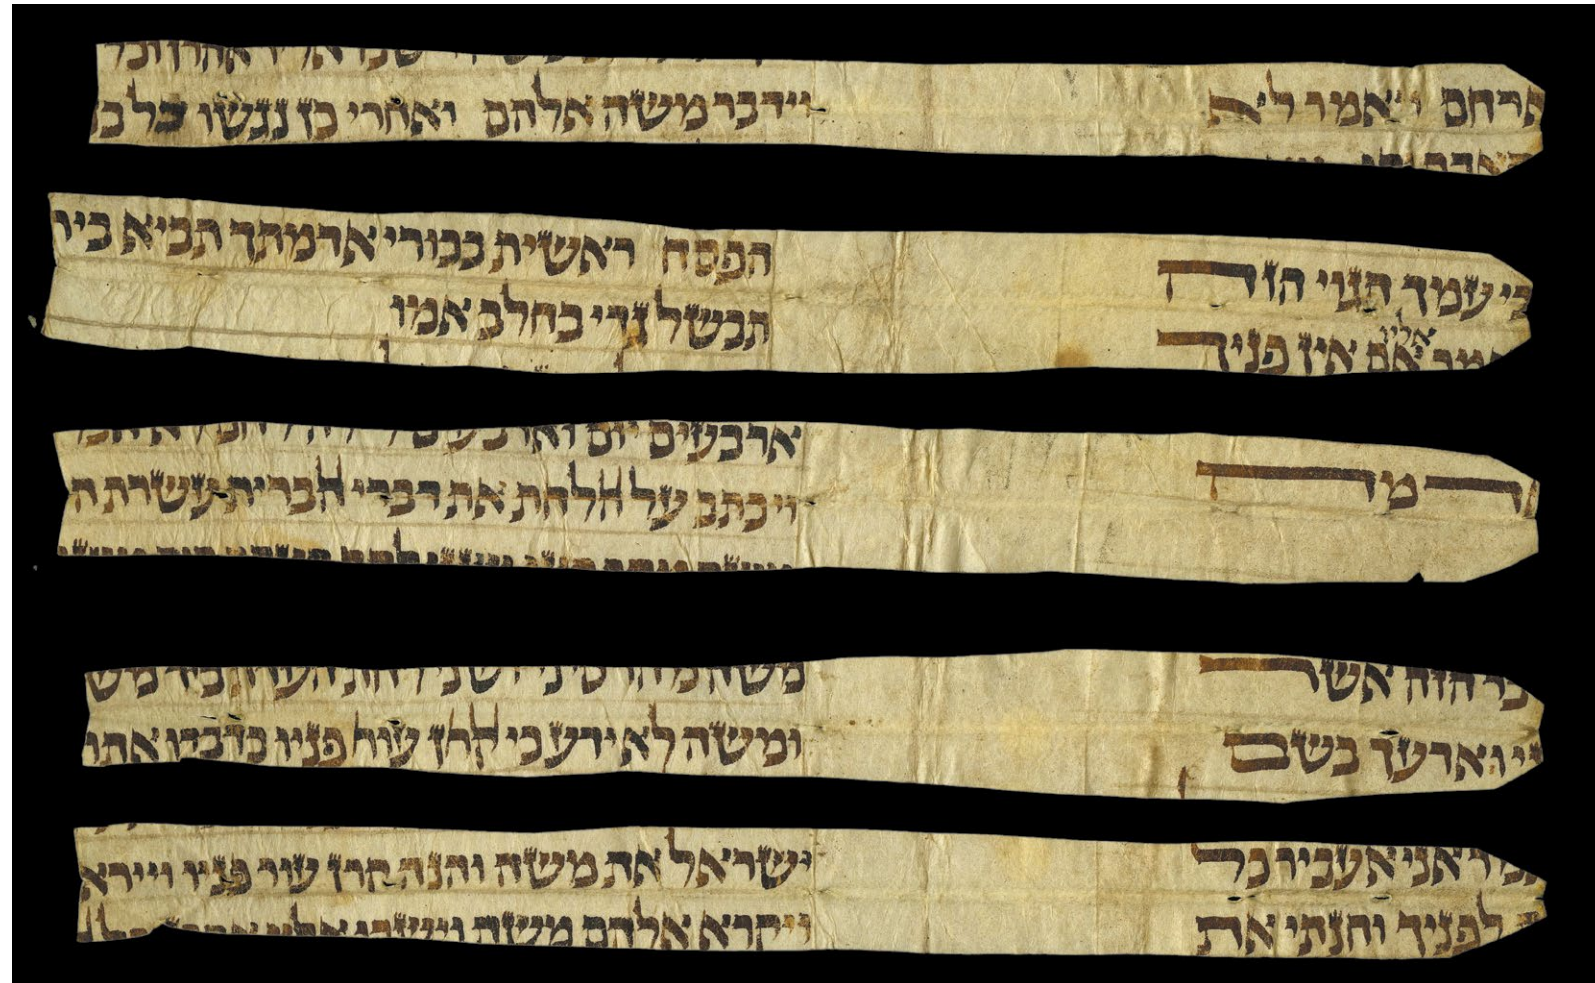 ארחם ויאמר לא
וידבר משה אלהם ואחרי כן נגשו כל
כי עמך הגוי הזה
אליו
אם אין פניך
הפסח ראשית בכורי אדמתך תביא
תבשל גדי בחלב אמו
מה
ארבעים יום
ויכתב על הלחת את דברי הברית עשרת
הזה אשר
ואדעך בשם
משה מהר סיני ושני לחת העדת ביד
ומשה לא ידע כי קרן עור פניו בדברו אתו
אני אעביר כל
לפניך וחנתי את
ישראל את משה והנה קרן עור פניו
ויקרא אלהם משה וישבו אליו